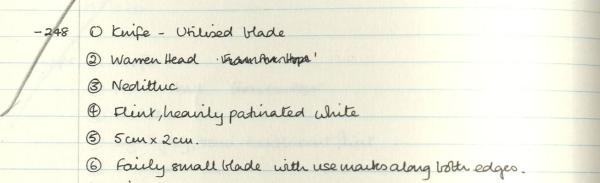 -248 ① Knife - Utilised blade
② Warren Head
③ Neolithic
④ Flint, heavily patinated white
⑤ 5cm x 2cm.
⑥ Fairly small blade with use marks along both edges.